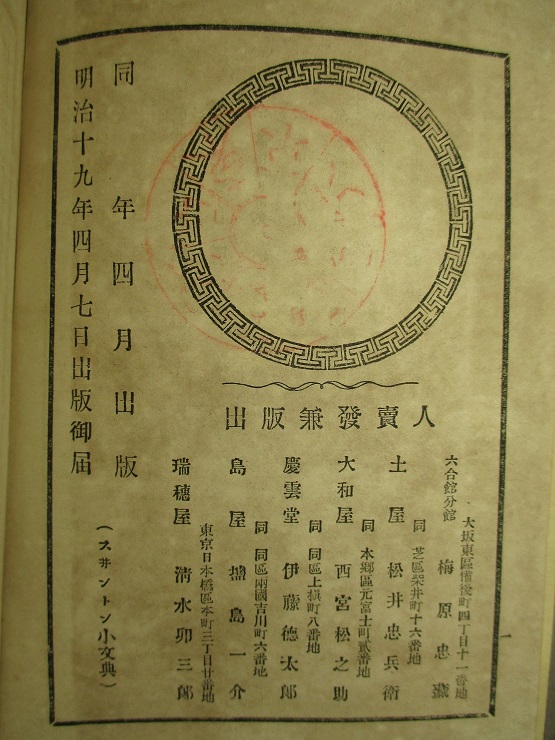 明治十九年四月七日出版御届
同年四月出版
(スサントン小文典)
出版兼發賣人
瑞穗屋 清水卯三郎
東京日本橋區本町三丁目廿番地
島屋 鹽島一介
同 同區兩國吉川町六番地
慶雲堂 伊藤徳太郎
同 同區上槇町八番地
大和屋 西宮松之助
同 本郷區元富士町貳番地
土屋 松井忠兵衛
同 芝區柴井町十六番地
六合館分館 梅原忠藏
大坂東區備後町四丁目十一番地
一